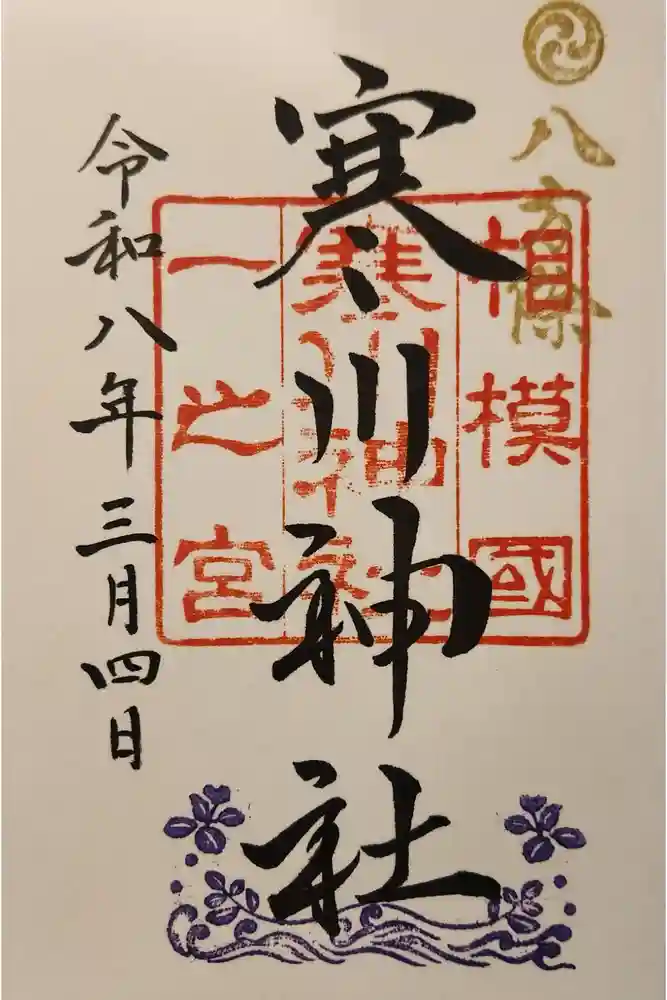 八方除
寒川神社
相模國
寒川神社
一之宮
令和八年三月四日